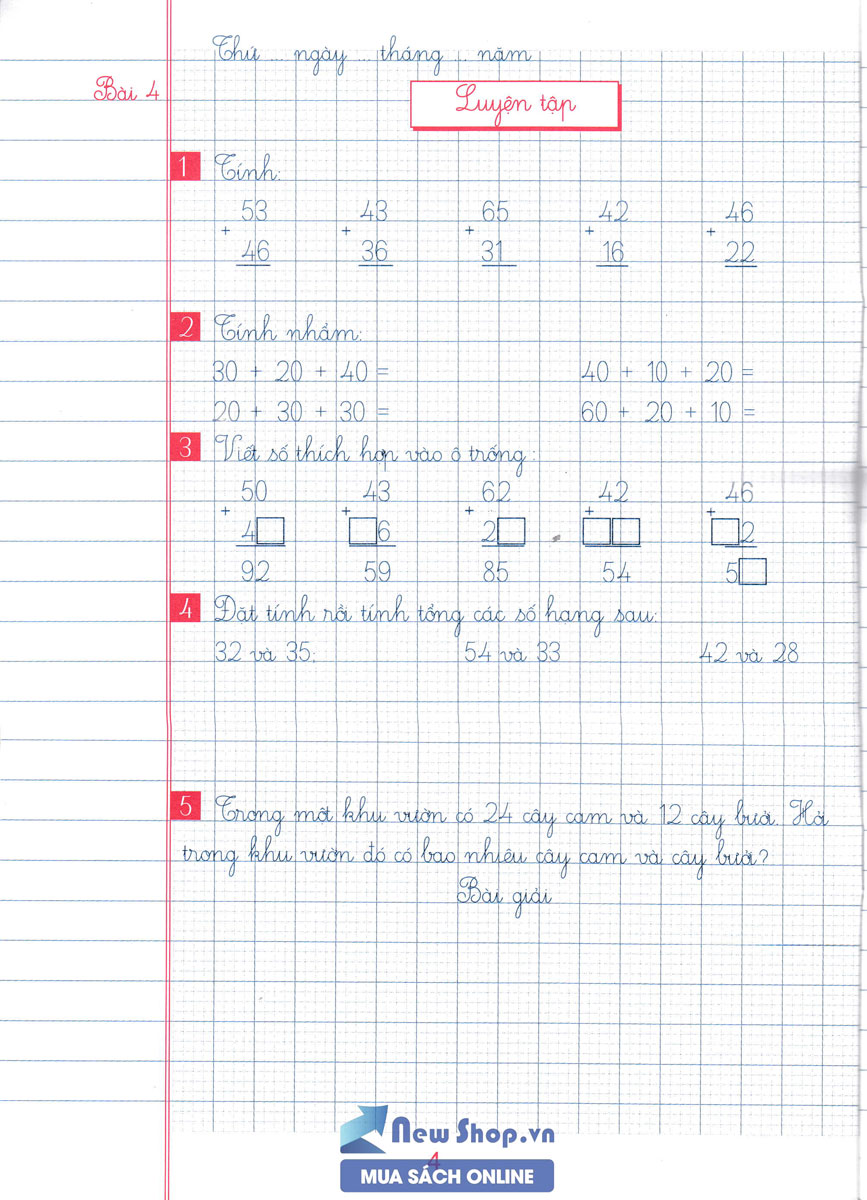 Thứ ... ngày ... tháng ... năm
Bài 4
Luyện tập
1 Tính:
53 43 65 42 46
+ + + + +
46 36 31 16 22
2 Tính nhẩm:
30 + 20 + 40 = 40 + 10 + 20 =
20 + 30 + 30 = 60 + 20 + 10 =
3 Viết số thích hợp vào ô trống:
50 43 62 42 46
+ + + + +
4□ □6 2□ □□ □2
92 59 85 54 5□
4 Đặt tính rồi tính tổng các số hạng sau:
32 và 35; 54 và 33 42 và 28
5 Trong một khu vườn có 24 cây cam và 12 cây bưởi. Hỏi
trong khu vườn đó có bao nhiêu cây cam và cây bưởi?
Bài giải
New Shop.vn
4
MUA SÁCH ONLINE